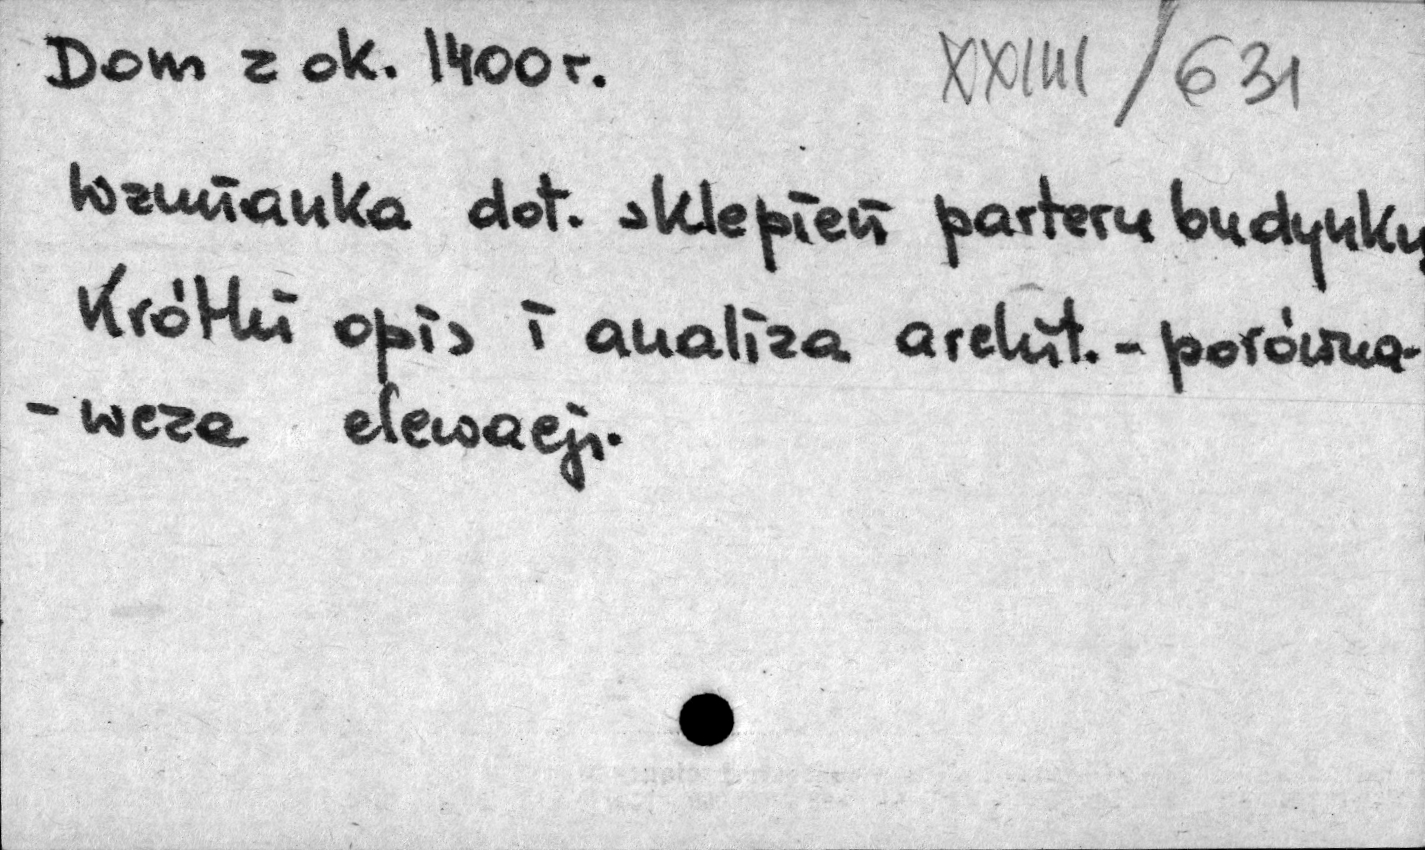 Dom z ok. 1400 r. XXIIII / 631
Wzmianka dot. sklepień parteru budynku
Krótki opis i analiza archit. - porówna-
- wcza elewacji.